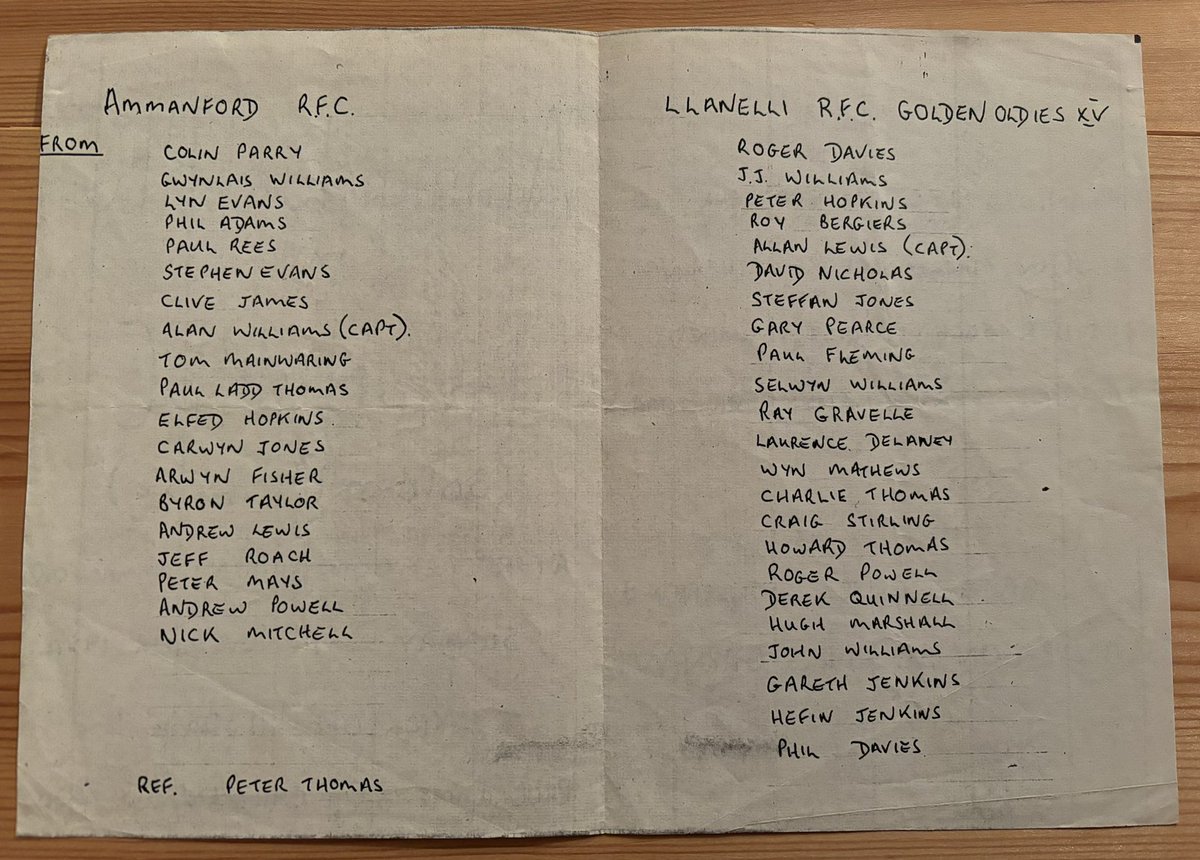 AMMANFORD R.F.C.
FROM
COLIN PARRY
GWYNLAIS WILLIAMS
LYN EVANS
PHIL ADAMS
PAUL REES
STEPHEN EVANS
CLIVE JAMES
ALAN WILLIAMS (CAPT).
TOM MAINWARING
PAUL LADD THOMAS
ELFED HOPKINS
CARWYN JONES
ARWYN FISHER
BYRON TAYLOR
ANDREW LEWIS
JEFF ROACH
PETER MAYS
ANDREW POWELL
NICK MITCHELL
REF. PETER THOMAS
LLANELLI R.F.C. GOLDEN OLDIES XV
ROGER DAVIES
J.J. WILLIAMS
PETER HOPKINS
ROY BERGIERS
ALLAN LEWIS (CAPT).
DAVID NICHOLAS
STEFFAN JONES
GARY PEARCE
PAUL FLEMING
SELWYN WILLIAMS
RAY GRAVELLE
LAURENCE DELANEY
WYN MATHEWS
CHARLIE THOMAS
CRAIG STIRLING
HOWARD THOMAS
ROGER POWELL
DEREK QUINNELL
HUGH MARSHALL
JOHN WILLIAMS
GARETH JENKINS
HEFIN JENKINS
PHIL DAVIES